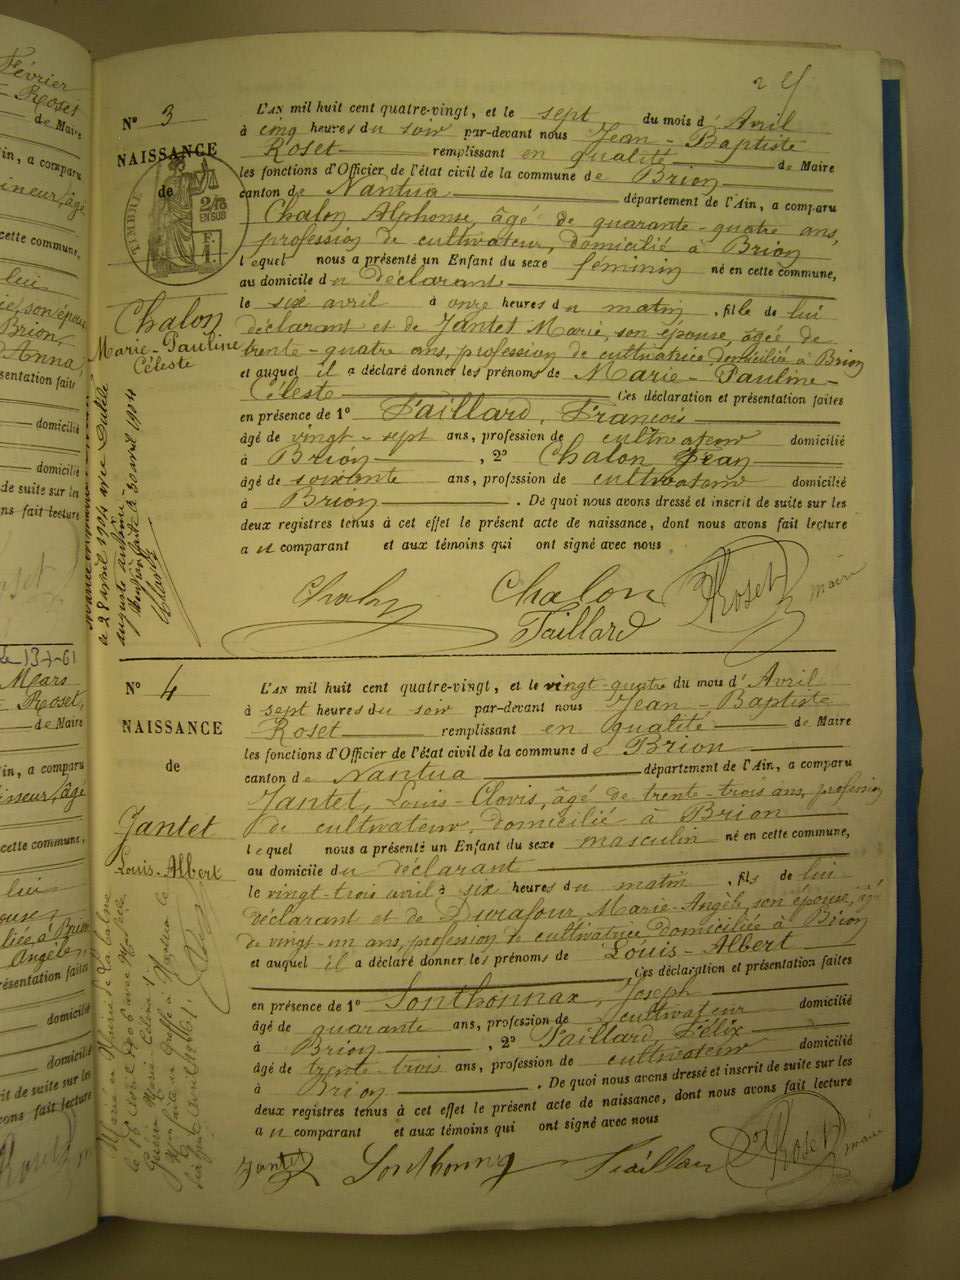 Février
Roset
de Maire
in, a comparu
cette commune,
lui
Brion,
d'Anna,
sentation faits
domicilié
domicilié
de suite sur les
ns fait lecture
Mars
Roset,
de Maire
in, a comparu
cette commune,
lui
Angèle
résentation faites
domicilié
domicilié
rit de suite sur les
ons fait lecture
2
Nº 3
NAISSANCE
de
TIMBRE
2/10
EN SUS
F.
1
Chalon
Marie-Pauline
Céleste
L'AN mil huit cent quatre-vingt, et le sept du mois d'Avril
à cinq heures du soir par-devant nous Jean-Baptiste
Roset remplissant en qualité de Maire
les fonctions d'Officier de l'état civil de la commune de Brion
canton de Nantua département de l'Ain, a comparu
Chalon Alphonse, âgé de quarante-quatre ans,
profession de cultivateur, domicilié à Brion
lequel nous a présenté un Enfant du sexe féminin né en cette commune,
au domicile du déclarant
le six avril à onze heures du matin, fille de lui
déclarant et de Jantet Marie, son épouse, âgée de
trente-quatre ans, profession de cultvatrice domiciliée à Brion
et auquel il a déclaré donner les prénoms de Marie-Pauline-
Céleste Ces déclaration et présentation faites
en présence de 1º Taillard, François
âgé de vingt-sept ans, profession de cultivateur domicilié
à Brion, 2º Chalon Jean
âgé de soixante ans, profession de cultivateur domicilié
à Brion. De quoi nous avons dressé et inscrit de suite sur les
deux registres tenus à cet effet le présent acte de naissance, dont nous avons fait lecture
au comparant et aux témoins qui ont signé avec nous
le 28 avril 1904 avec
auguste
30 avril 1904
Chalon
Chalon
Taillard
Roset
maire
Nº 4
NAISSANCE
de
Jantet
Louis-Albert
L'AN mil huit cent quatre-vingt, et le vingt-quatre du mois d'Avril
à sept heures du soir par-devant nous Jean-Baptiste
Roset remplissant en qualité de Maire
les fonctions d'Officier de l'état civil de la commune de Brion
canton de Nantua département de l'Ain, a comparu
Jantet, Louis-Clovis, âgé de trente-trois ans, profession
de cultivateur, domicilié à Brion
lequel nous a présenté un Enfant du sexe masculin né en cette commune,
au domicile du déclarant
le vingt-trois avril à six heures du matin, fils de lui
déclarant et de Durafour, Marie-Angèle, son épouse, âgé
de vingt-un ans, profession de cultivatrice domiciliée à Brion
et auquel il a déclaré donner les prénoms de Louis-Albert
Ces déclaration et présentation faites
en présence de 1º Sonthonnax, Joseph
âgé de quarante ans, profession de cultivateur domicilié
à Brion, 2º Taillard, Félix
âgé de trente-trois ans, profession de cultivateur domicilié
à Brion. De quoi nous avons dressé et inscrit de suite sur les
deux registres tenus à cet effet le présent acte de naissance, dont nous avons fait lecture
au comparant et aux témoins qui ont signé avec nous
Jantet
Sonthonnax
Taillard
Roset
maire